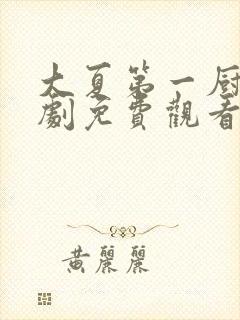 大夏第一厨
劇免費觀看
黃麗麗